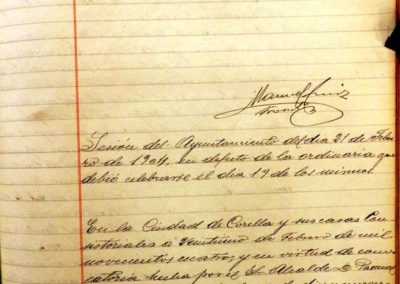 Manuel Ruiz
Sesión del Ayuntamiento del dia 21 de Febre
ro de 1904, en defecto de la ordinaria que
debió celebrarse el dia 19 de los mismos.
En la Ciudad de Corella y sus casas Con
sistoriales á veintiuno de Febrero de mil
novecientos cuatro, y en virtud de convo
catoria hecha por el Sr. Alcalde D. Pascual